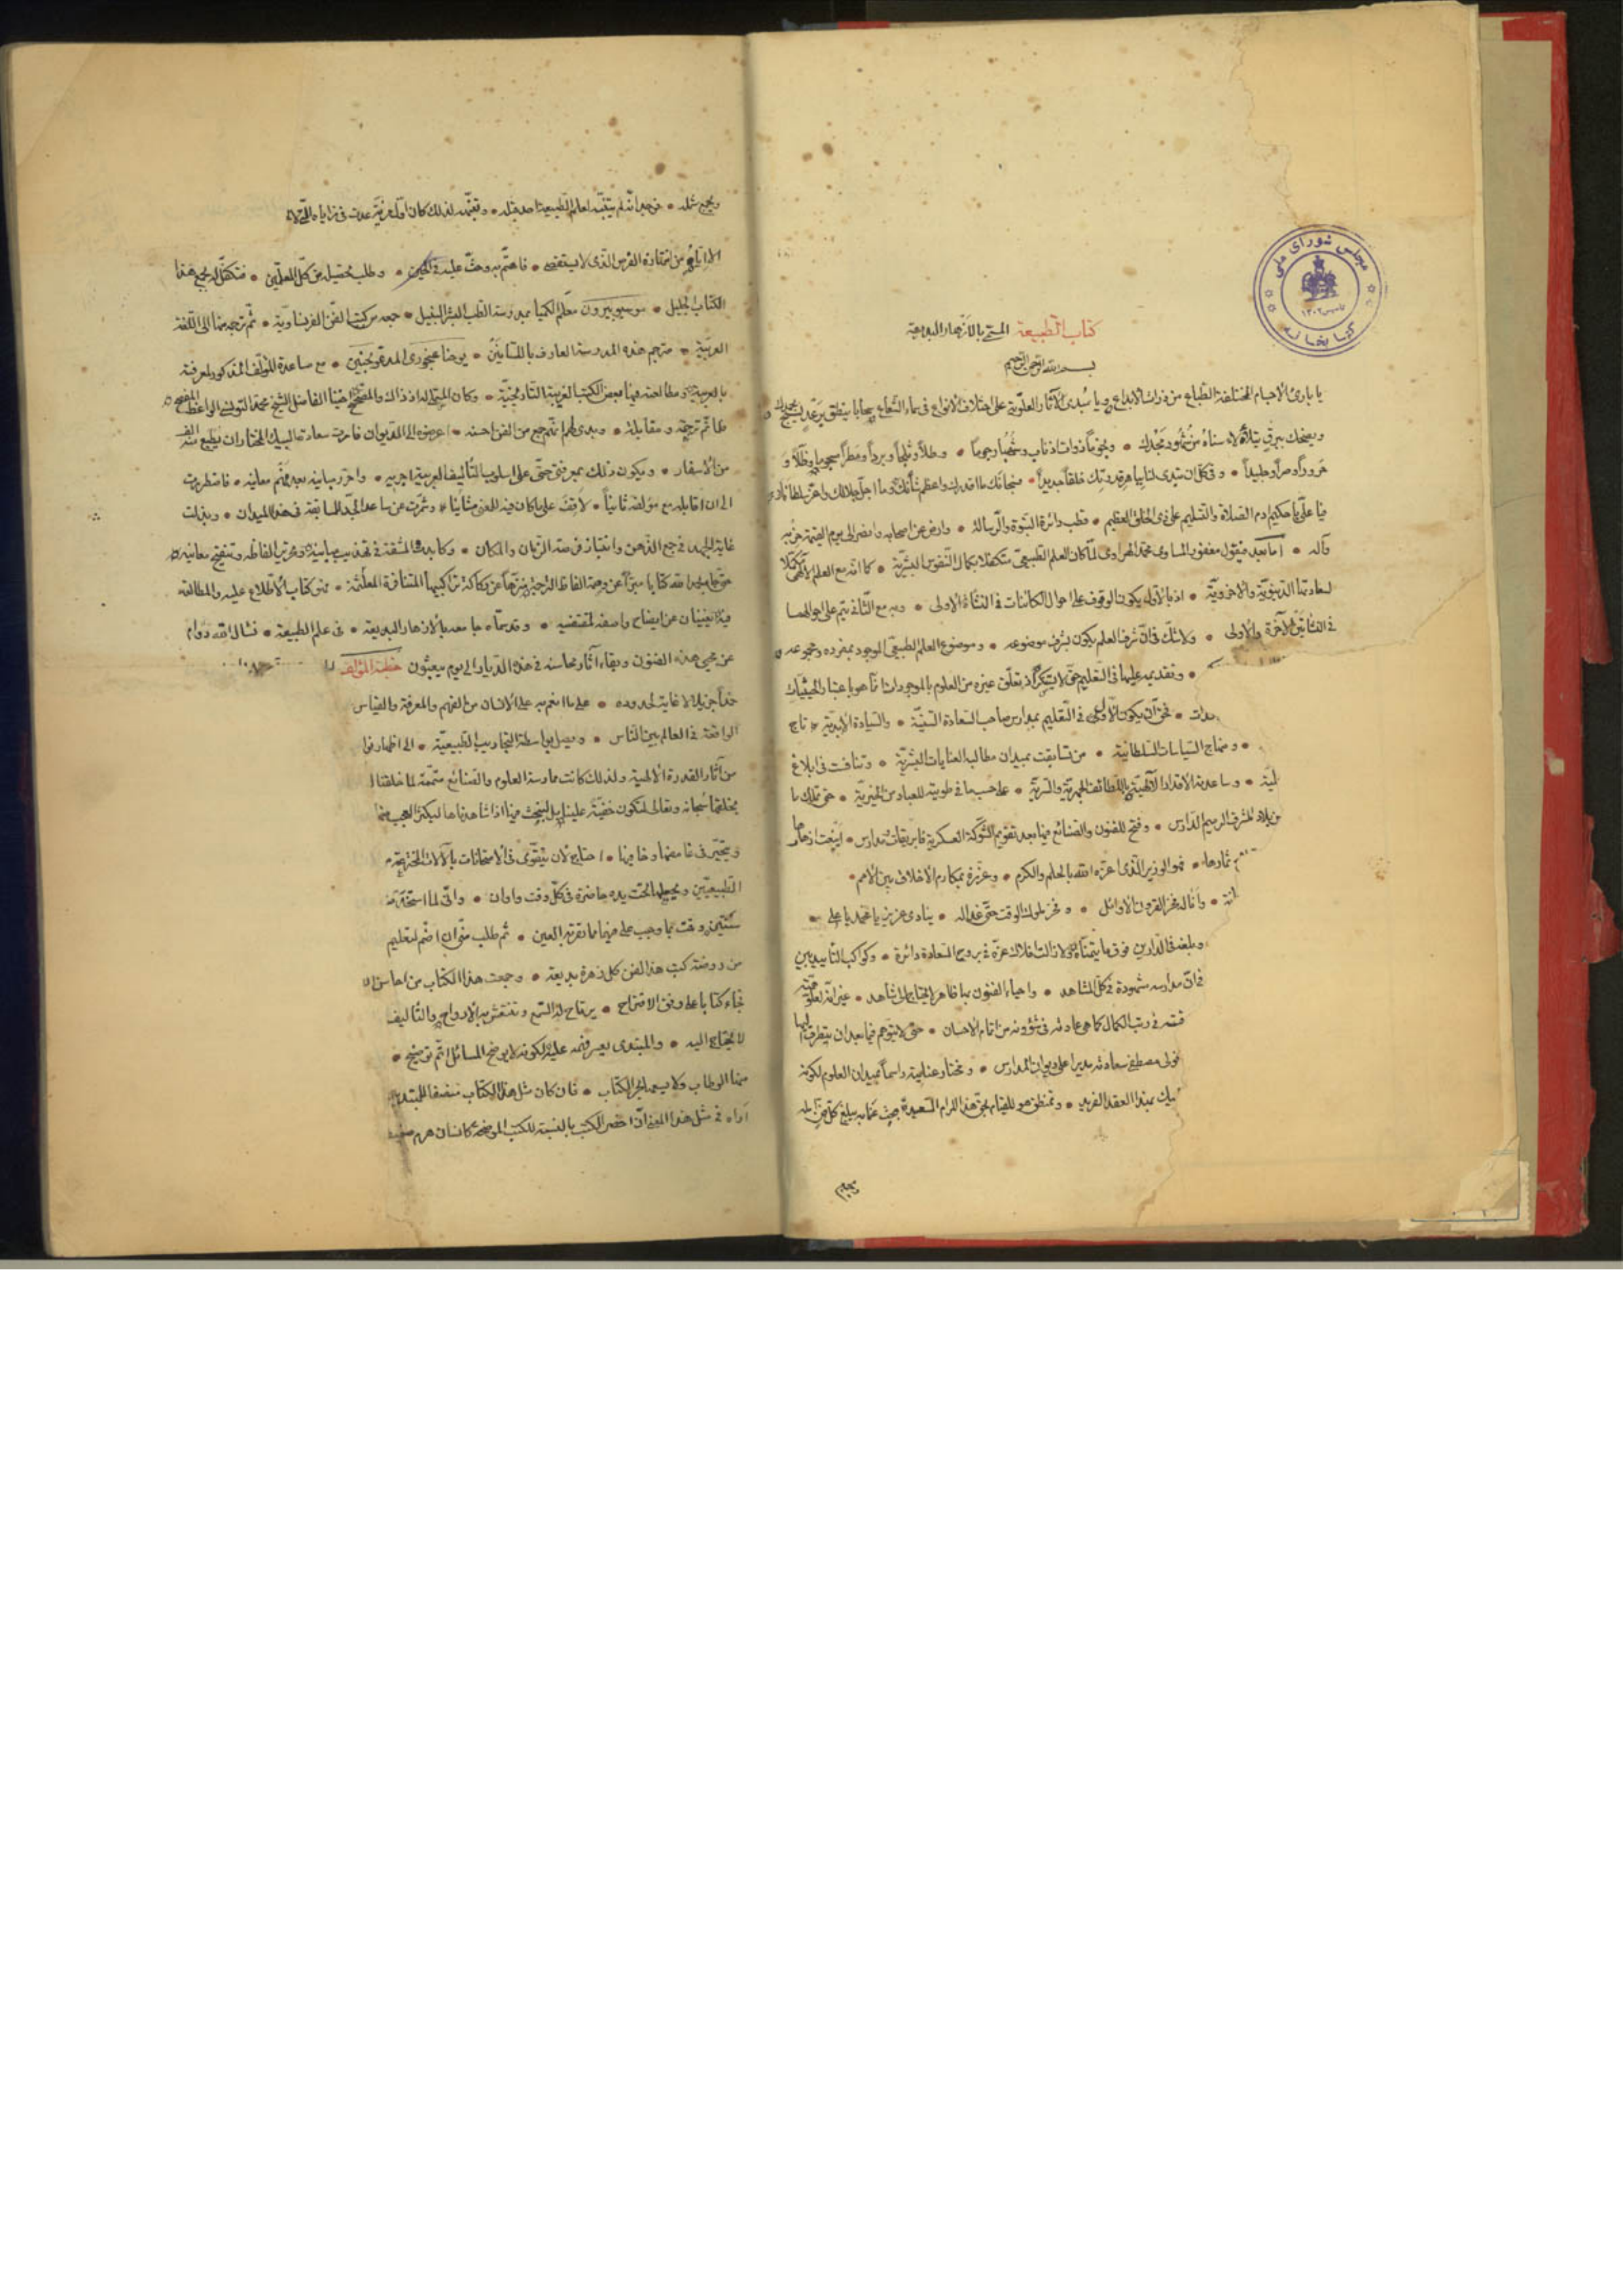 مجلس شورای ملی
کتابخانه
تأسیس ۱۳۰۲
کتاب الطبیعة المسمی بالازهار البدیعة
بسم الله الرحمن الرحیم
یا بارئ الاجسام المختلفة الطباع من ذرات الابداع ویا مُبدی الآثار العلویة علی اختلاف الانواع فی سماء الشعاع سحابا ینطق برعد
ویضحك ببرق یتلألأ سناه من شموه مجدك • ونجوماً ذوات اذناب وشُهُباً رجوماً • وطلاً وثلجاً وبرداً ومطراً
حروراً وصراً وجلیداً • وفی کل آن تبدی لنا بباهر قدرتك خلقاً جدیداً • فسبحانك ما اقدرك واعظم شأنك وما اجل جلالك واعز سلطانك
فیا علی یا حکیم ادم الصلاة والتسلیم علی ذی الخلق العظیم • قطب دائرة النبوة والرسالة • وارض عن اصحابه وانصر الی یوم القیمة حزبه
وآله • اما بعد فیقول مغفور المساوی محمد الهراوی لما کان العلم الطبیعی متکفلا بکمال النفوس البشریة • کما انه مع العلم الآلهی
لسعادتها الدنیویة والاخرویة • اذ بالاول یکون الوقوف علی احوال الکائنات فی النشأة الاولی • وبه مع الثانی یتم علی احوالهما
فی النشأتین الآخرة والاولی • ولا شك فی ان شرف العلم یکون بشرف موضوعه • وموضوع العلم الطبیعی الوجود بمفرده ومجموعه
• وتقدیمه علیها فی التعلیم حق لا ینکر اذ تعلق غیره من العلوم بالموجودات انما هو باعتبار الحیثیات
• فحق ان یکون الاولی فی التعلیم بمدارس صاحب السعادة السنیة • والسیادة الابدیة • تاج
• ومنهاج السیاسات السلطانیة • من تسابقت بمیدان مطالبه العنایات البشریة • وتنافست فی ابلاغ
• وساعدته الاقدار الآلهیة باللطائف الجهریة والسریة • علی حسب ما فی طویته للعباد من الخیریة • حتی تملك ما
من بلاد الشرف الرمیم الدارس • وفتح للفنون والصنائع فیما بعد تقویم الشوکة العسکریة فابریقات ومدارس • اینعت ازهارها
ثمارها • فهو الوزیر الذی اعزه الله بالحلم والکرم • وعززه بمکارم الاخلاق بین الامم •
• وانا له فخر القرون الاوائل • وفخر ملوك الوقت حتی غدا له • ینادی عزیز یا محمد یا علی •
وبلغه فی الدارین فوق ما یتمناه ولا زالت افلاك عزه فی بروج السعادة دائرة • وکواکب التأیید بین
فان مدارسه مشهودة فی کل المشاهد • واحیاء الفنون بها ظاهر لا یحتاج الی شاهد • غیر انه لعلو همته
فی رتب الکمال کما هی عادته فی شؤونه من اتمام الاحسان • حتی لا یتوهم فیما بعد ان یتطرق الیها
فولی مصطفی سعادته مدیرا علی دیوان المدارس • ومختار عنایته راسما بمیدان العلوم لکونه
بیك بهذا العقد الفرید • وتمنطق هو للقیام بحق هذا المرام السعیدة بحیث
ویجمع
ویجمع شمله • فوجد انه لم یتنبه لعالم الطبیعة احد قبله • وتعلیمه لذلك کان اول مزیة عدت فی مزایاه التی لا
من تمتاز به الغرس الذی لا ینقضی • فاهتم به وحث علیه فی الحین • وطلب تحصیله من کل المعلمین • فتکفل له بجمع هذا
الکتاب الجلیل • موسیو بیرون معلم الکمیا بمدرسة الطب البشر النبیل • جمعه من کتب الفن الفرنساویة • ثم ترجم منها الی اللغة
العربیة • مترجم هذه المدرسة العارف باللسانین • یوحنا عنحوری المدعو بحنین • مع مساعدة المؤلف المذکور لمعرفته
بالعربیة ومطالعته فیها بعض الکتب العربیة التاریخیة • وکان المملی له اذ ذاك والمصحح اخینا الفاضل الشیخ محمد التونسی الواعظ المصحح
فلما تم ترجمة ومقابلة • وبدی لهم انهم جمع من الفن احسنه • اعرضوه الی الدیوان فامرت سعادة البیك المختار ان یطبع منه الف
من الاسفار • ویکون ذلك بمعرفتی حتی علی اسلوب التألیف العربیة اجریه • واحرر مبانیه بعد تفهم معانیه • فاضطررت
الی ان اقابله مع مؤلفه ثانیاً • لاقف علی ما کان فیه للفن مثانیاً • وشمرت عن ساعد الجد للمسابقة فی هذا المیدان • وبذلت
غایة الجهد فی جمع الذهن وانتهاز فرصة الزمان والمکان • وکابدت المشقة فی تهذیب مبانیه وتحریر الفاظه وتنقیح معانیه
حتی جاء بحمد الله کتابا مبرأً عن وصمة الفاظ الترجمة منزهاً عن رکاکة تراکیبها المتنافرة المعلمة • فهو کتاب الاطلاع علیه والمطالعة
فیه یغنیان عن ایضاح واصفه لمقتضیه • وقد سماه جامعه بالازهار البدیعة • فی علم الطبیعة • نسال الله دوام
عز محیی هذه الفنون وبقاء آثار محاسنه فی هذه الدیار الی یوم یبعثون خطبة المؤلف
حمداً جزیلا لا غایة لحدوده • علی ما انعم به علی الانسان من الفهم والمعرفة والقیاس
الواقعة فی العالم بین الناس • ویصل بواسطة التجاریب الطبیعیة • الی اظهار
من آثار القدرة الالهیة ولذلك کانت ممارسة العلوم والصنائع متممة لما خلقنا
بخلقها سبحانه وتعالی لتکون خفیة علینا بل لنبحث فیها اذا شاهدناها لیکثر العجب منها
ویتحیر فی غامضها وخافیها • احتاج لان یتقوی فی الامتحانات بآلات المخترعة
الطبیعیین ویجعلها تحت یده حاضرة فی کل وقت واوان • وانی لما استحقیت
سنتین وقت بما وجب علی فیهما مما تقر به العین • ثم طلب منی ان اضم لتعلیم
من روضة کتب هذا الفن کل زهرة بدیعة • وجمعت هذا الکتاب من
فجاء کتابا علی وفق الاقتراح • یرتاح له السمع وتنتعش به الارواح والتألیف
لا یحتاج الیه • والمبتدی یعسر فهمه علیه لکونه لا یوضح المسائل اتم توضیح •
منها الوطاب ولا یسعها بحر الکتاب • فان کان مثل هذا الکتاب منصفا للمبتدی
اراه فی مثل هذا المعنی ان اخصر الکتب بالنسبة للکتب الموضحة کانسان هرم